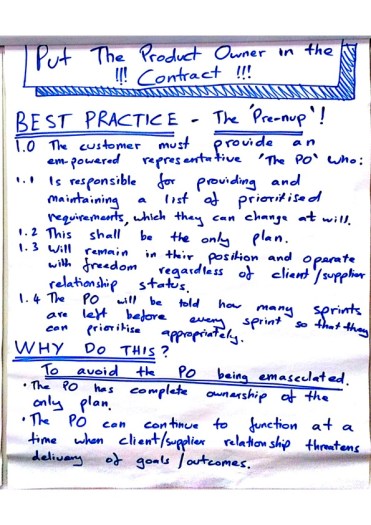 Put The Product Owner in the
!!! Contract !!!
BEST PRACTICE - The 'Pre-nup'!
1.0 The customer must provide an
empowered representative 'The PO' who:
1.1 Is responsible for providing and
maintaining a list of prioritised
requirements, which they can change at will.
1.2 This shall be the only plan.
1.3 Will remain in their position and operate
with freedom regardless of client/supplier
relationship status.
1.4 The PO will be told how many sprints
are left before every sprint so that they
can prioritise appropriately.
WHY DO THIS?
To avoid the PO being emasculated.
• The PO has complete ownership of the
only plan.
• The PO can continue to function at a
time when client/supplier relationship threatens
delivery of goals/outcomes.